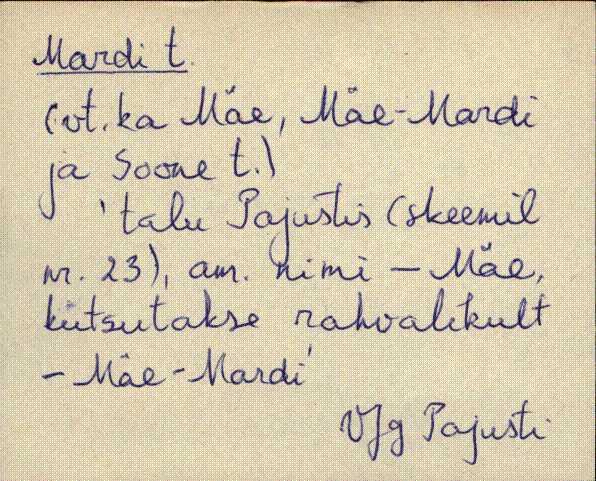 Mardi t.
(vt. ka Mäe, Mäe-Mardi
ja Soone t.)
'talu Pajustis (skeemil
nr. 23), am. nimi – Mäe,
kutsutakse rahvalikult
– Mäe-Mardi'
VJg Pajusti